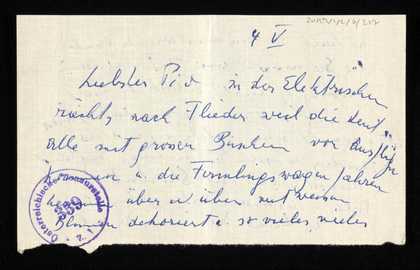 4 V
Liebster Piv in der Elektrischen
riechts nach Flieder weil die Leut
alle mit grossen Buschen von Ausflügen
u. die Firmlingswagen fahren
über u. über mit weissen
Blumen dekoriert u. so vieles, vieles
Österreichische Zensurstelle
339